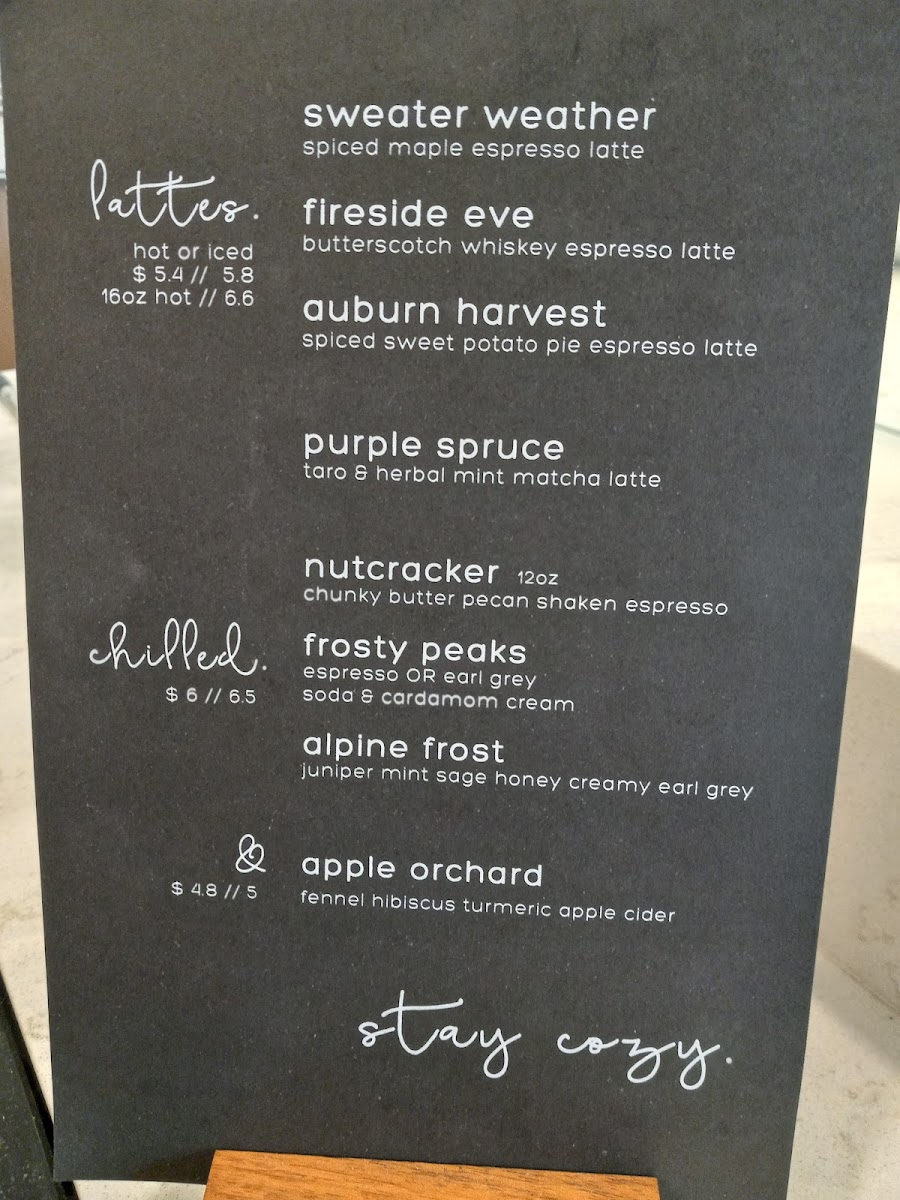 sweater weather
spiced maple espresso latte
lattes.
hot or iced
$ 5.4 // 5.8
16oz hot // 6.6
fireside eve
butterscotch whiskey espresso latte
auburn harvest
spiced sweet potato pie espresso latte
purple spruce
taro & herbal mint matcha latte
nutcracker 12oz
chunky butter pecan shaken espresso
chilled.
$ 6 // 6.5
frosty peaks
espresso OR earl grey
soda & cardamom cream
alpine frost
juniper mint sage honey creamy earl grey
&
$ 4.8 // 5
apple orchard
fennel hibiscus turmeric apple cider
stay cozy.